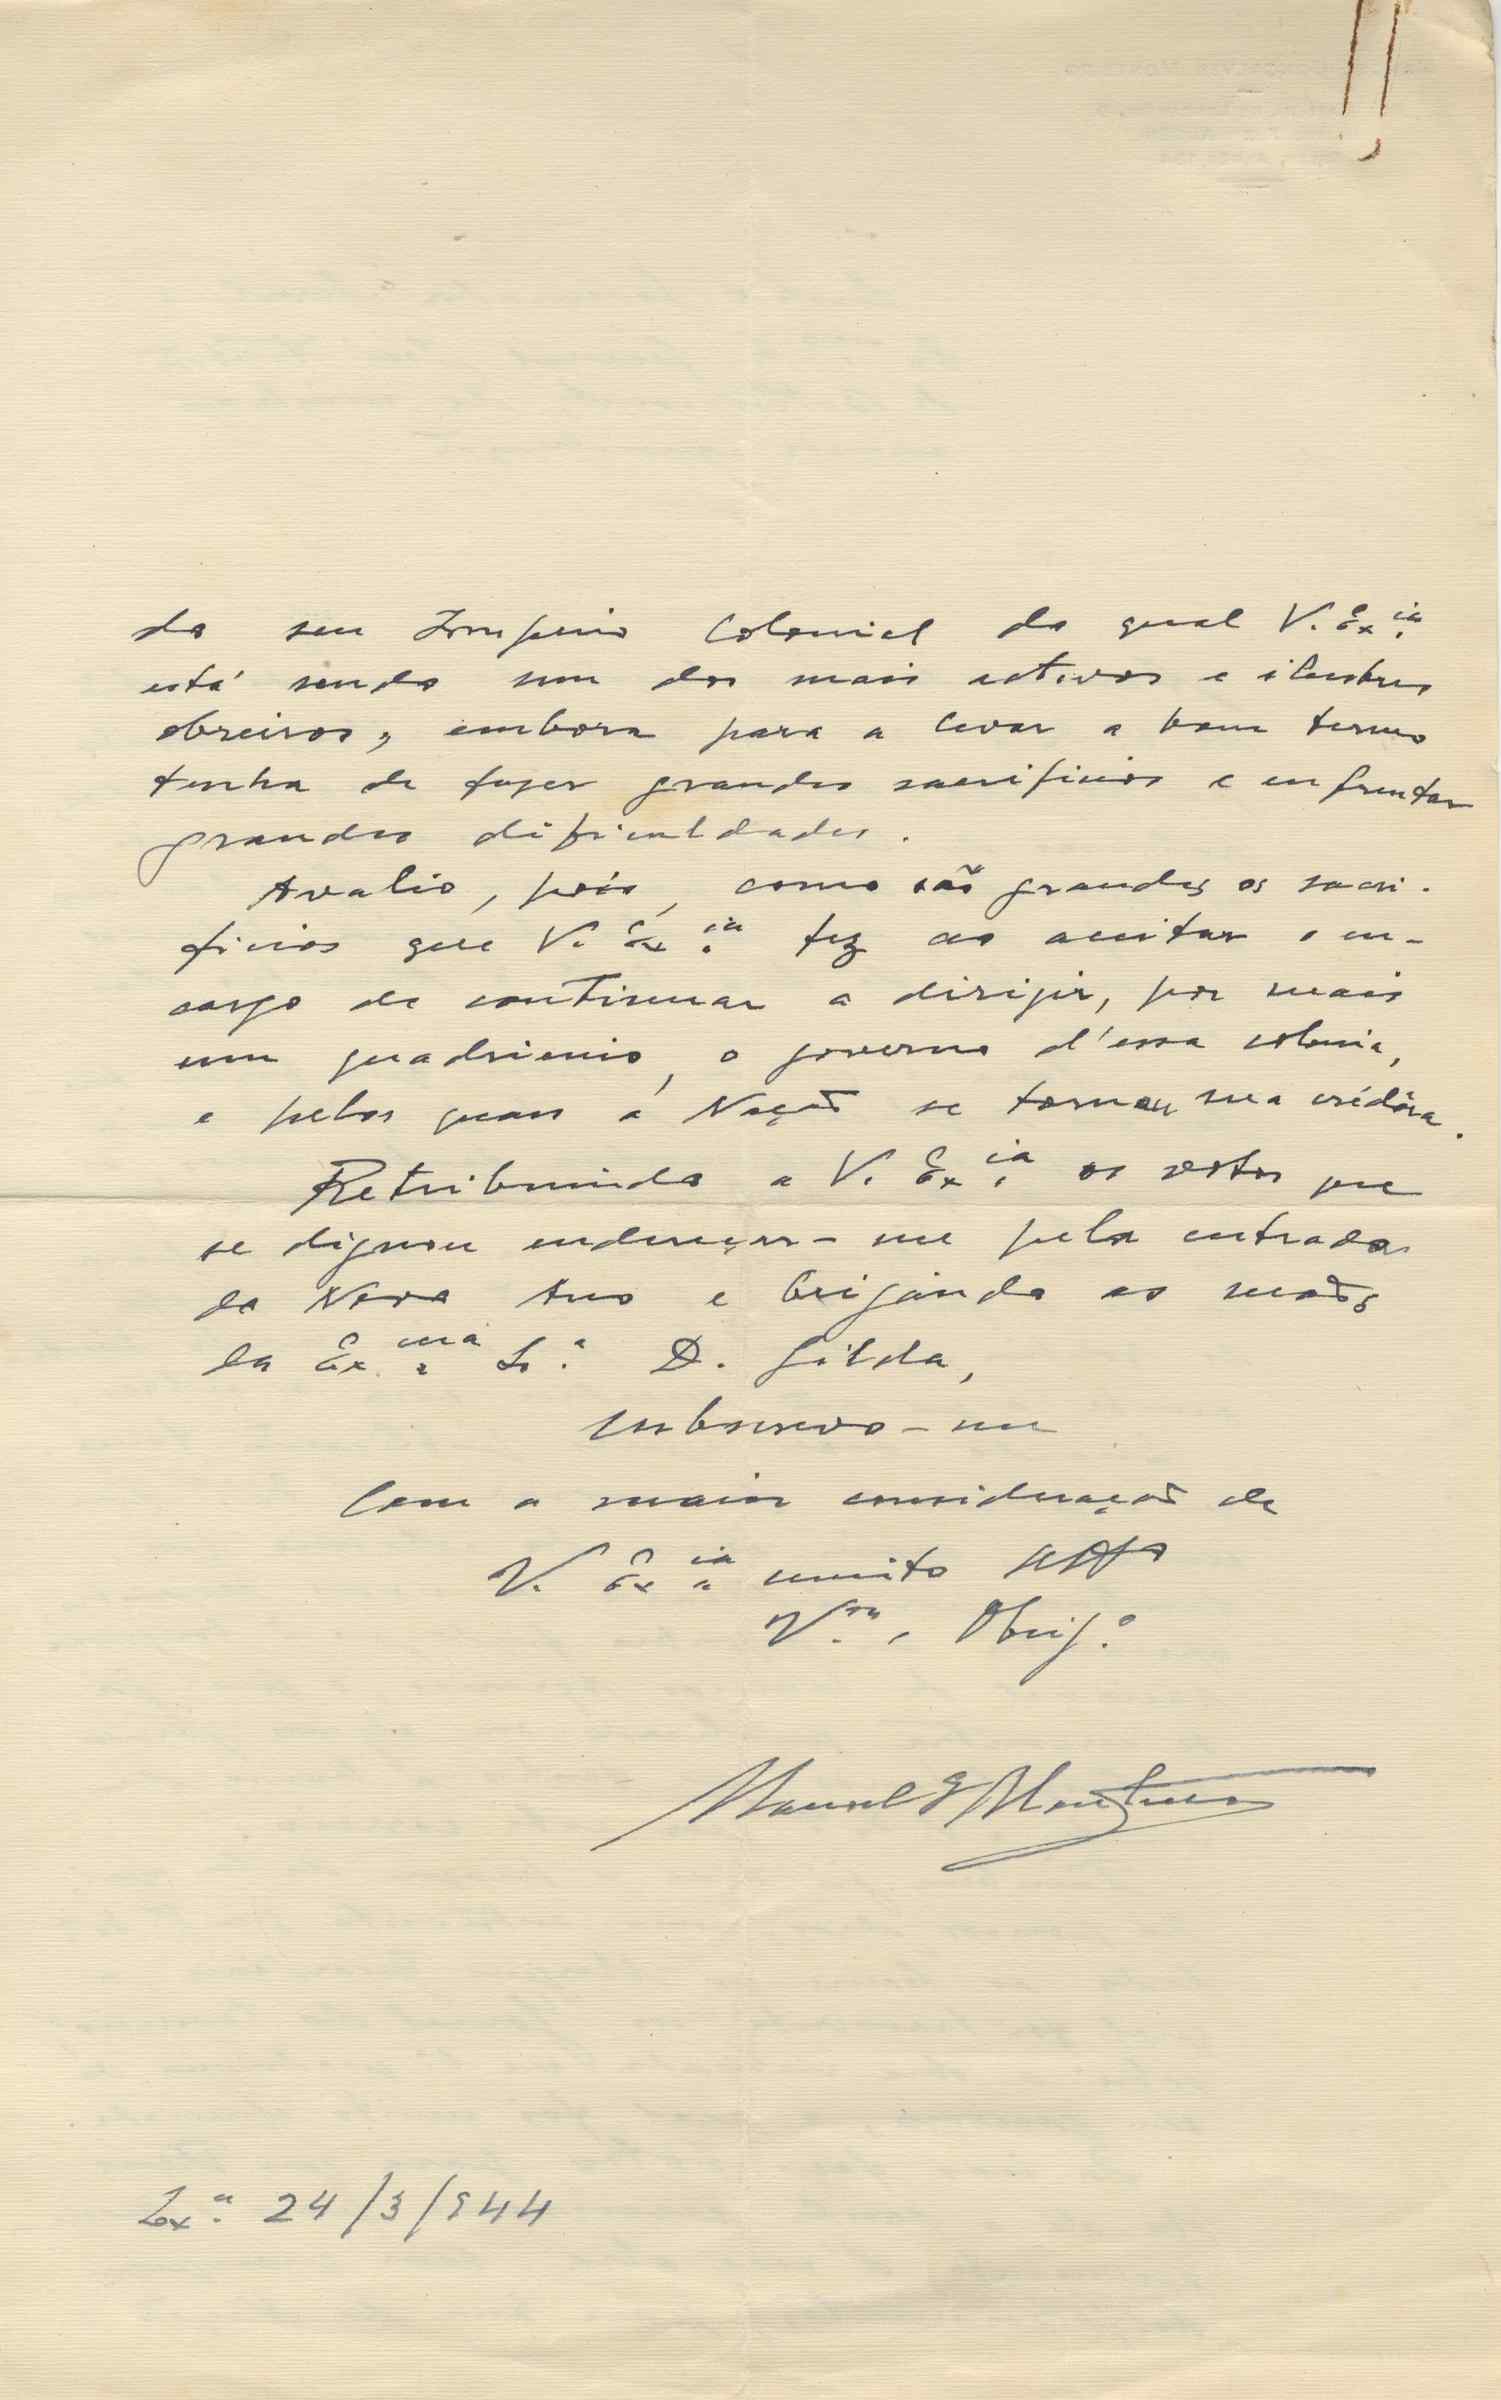 do seu Imperio Colonial do qual V. Ex.ia
está sendo um dos mais activos e ilustres
obreiros, embora para a levar a bom termo
tenha de fazer grandes sacrificios e enfrentar
grandes dificuldades.
Avalio, pois, como são grandes os sacri-
ficios que V. Ex.ia fez ao aceitar o en-
cargo de continuar a dirigir, por mais
um quadrienio, o governo d'essa colonia,
e pelos quais a Nação se tornou sua crédora.
Retribuindo a V. Ex.ia os votos que
se dignou endereçar-me pela entrada
do Novo Ano e beijando as mãos
da Ex.ma Sr.a D. Gilda,
subscrevo-me
Com a maior consideração de
V. Ex.ia muito
V.or, Obrig.o
Manoel G Monteiro
Lx.a 24/3/944